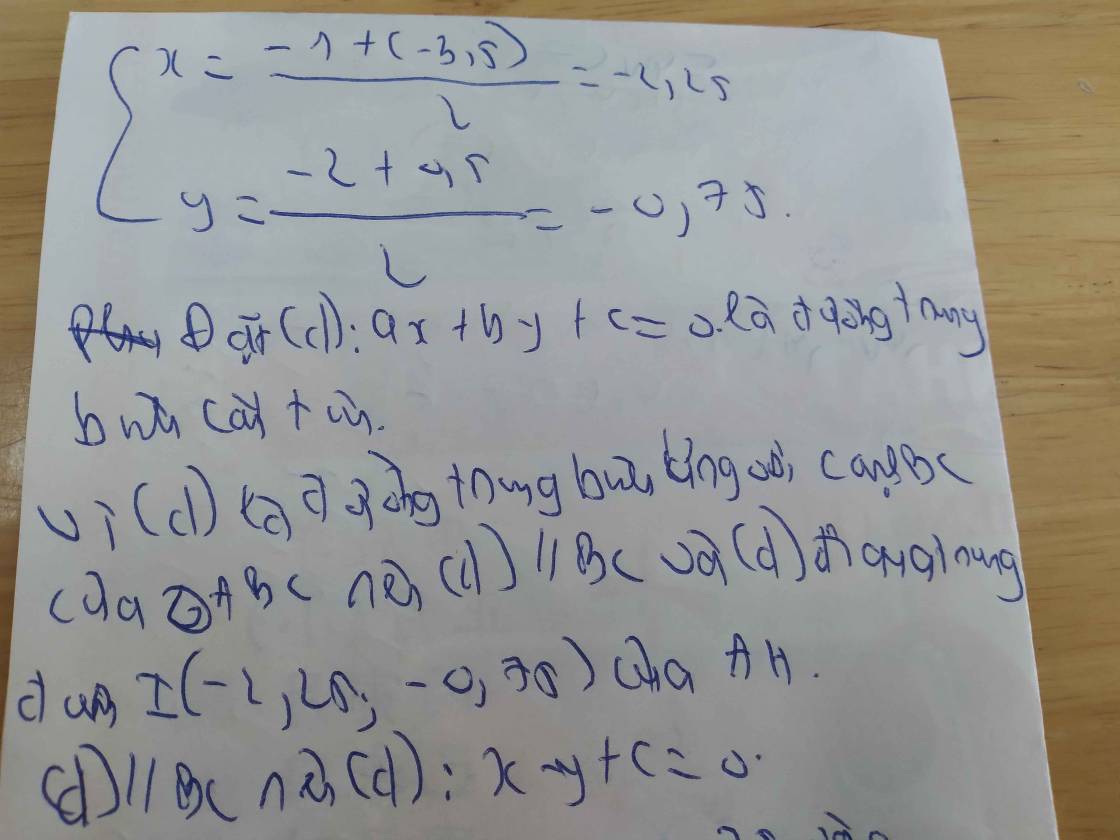 { x = (-1 + (-3,5)) / 2 = -2,25
y = (-2 + 0,5) / 2 = -0,75.
Đặt (d): ax + by + c = 0. là đường trung
bình cần tìm.
Vì (d) là đường trung bình ứng với cạnh BC
của △ABC nên (d) // BC và (d) đi qua trung
điểm I(-2,25; -0,75) của AH.
(d) // BC nên (d): x - y + c = 0.